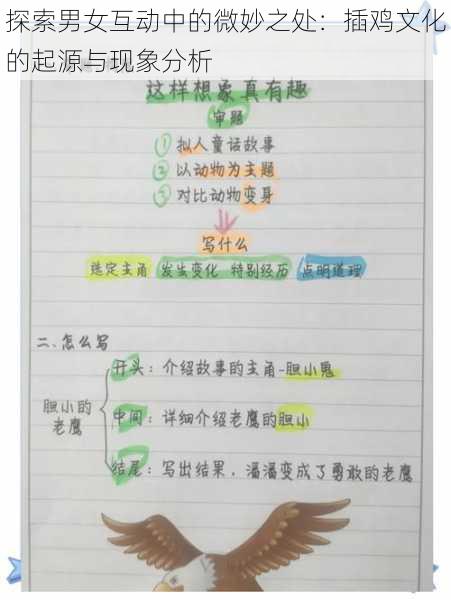 探索男女互动中的微妙之处：插鸡文化
的起源与现象分析
这样想象真有趣
审题
① 拟人童话故事
② 以动物为主题
③ 对比动物变身
写什么
选定主角 发生变化 特别经历 点明道理
二、怎么写
开头：介绍故事的主角-胆小鬼
胆小的
老鹰
中间：详细介绍老鹰的胆小
结尾：写出结果，潘潘变成了勇敢的老鹰